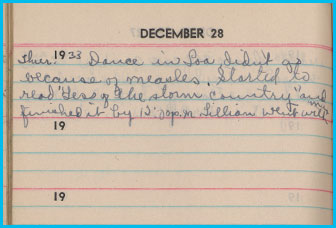 DECEMBER 28
Thur. 1933 Dance in Loa didnt go
because of measles. Started to
read "Tess of the storm country" and
finished it by 12:00 p.m. Lillian went with
19
19